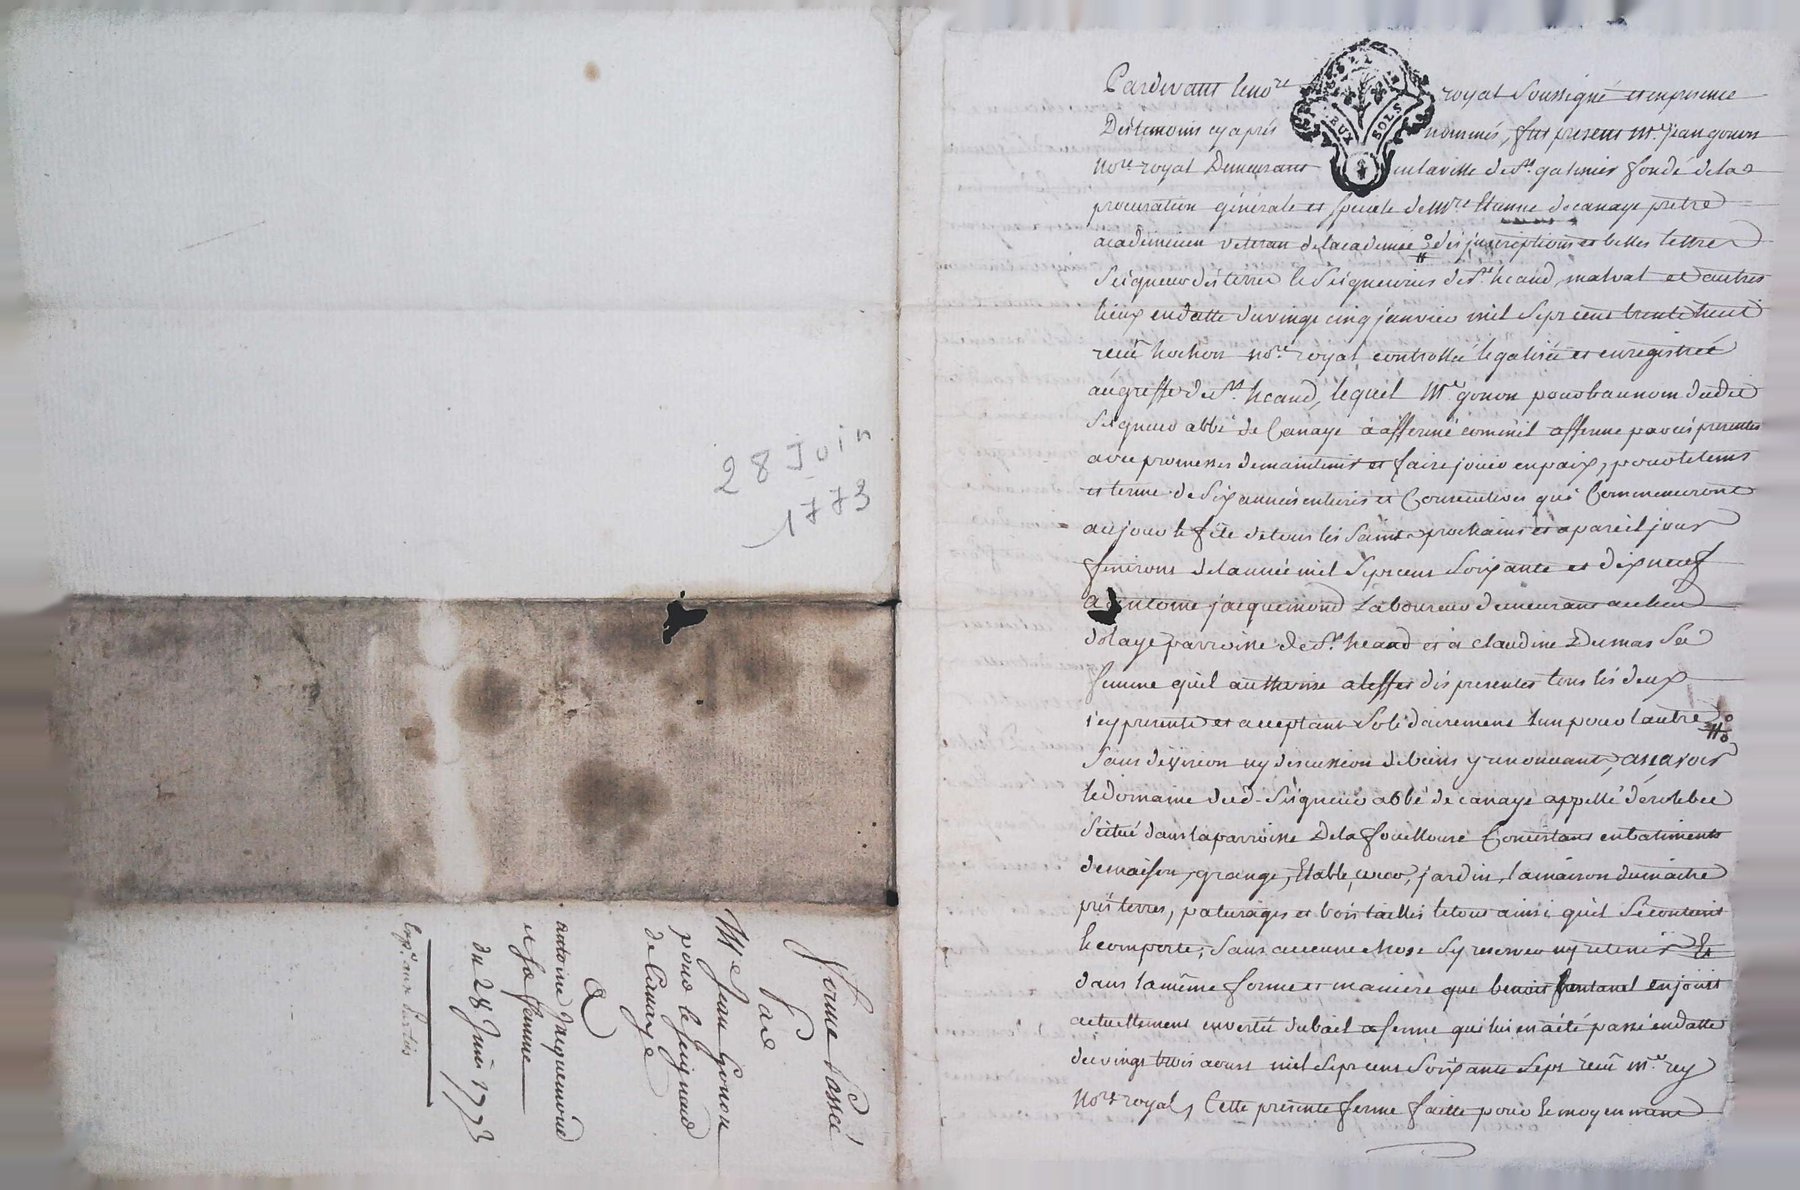 28 Juin
1773
ferme Passée
Par
Me Jean Gonon
pour le seigneur
de Canaye
a
antoine Jaquemond
et sa femme
du 28 Juin 1773
Expn aux parties
DEUX SOLS
Pardevant le nore royal soussigné et en presence
Des temoins cy après nommés, fut present Me. jean gonon
nore royal Demeurant en la ville de St. galmier fondé de la
procuration générale et speciale de Mre Etienne de canaye pretre
academicien veteran de l'academie des inscriptions et belles lettres
seigneur des terres & seigneuries de St. heand, malval et autres
lieux en datte du vingt cinq janvier mil sept cent trente huit
recue hochon nore royal controllée legalisée et enregistrée
au greffe de St. heand, lequel Me gonon pour & au nom dudit
seigneur abbé de Canaye a affermé comme il afferme par ces presentes
avec promesses de maintenir et faire jouir en paix, pour le tems
et terme de six années entieres et consecutives qui commenceront
au jour & fête de tous les saints prochains et a pareil jour
finiront de l'année mil sept cent soixante et dix neuf
a antoine jacquemond Laboureur demeurant au lieu
dolaye parroisse de St. heand et a claudine Dumas sa
femme quil authorise a leffet des presentes tous les deux
icy presents et acceptant solidairement l'un pour l'autre
sans division ny discussion de biens y renonceant, asçavoir
le domaine dud. seigneur abbé de canaye appellé
scitué dans la parroisse De la fouillouse Consistant en batiments
de maison, grange, Etable, cour, jardin, la maison du maitre
prés terres, paturages et bois taillis le tout ainsi quil se contient
& comporte, sans aucune chose sy reserver ny retenir Et
dans la même forme et maniere que benoit fontanel en jouit
actuellement en vertu du bail a ferme qui lui en a été passé en datte
du vingt trois aoust mil sept cent soixante sept recu Me rey
Nore royal, Cette presente ferme faitte pour & moyennant